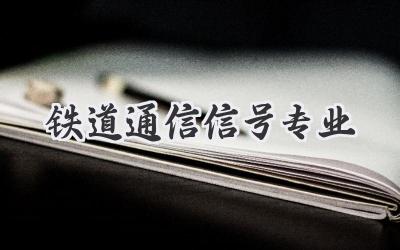 铁道通信信号专业